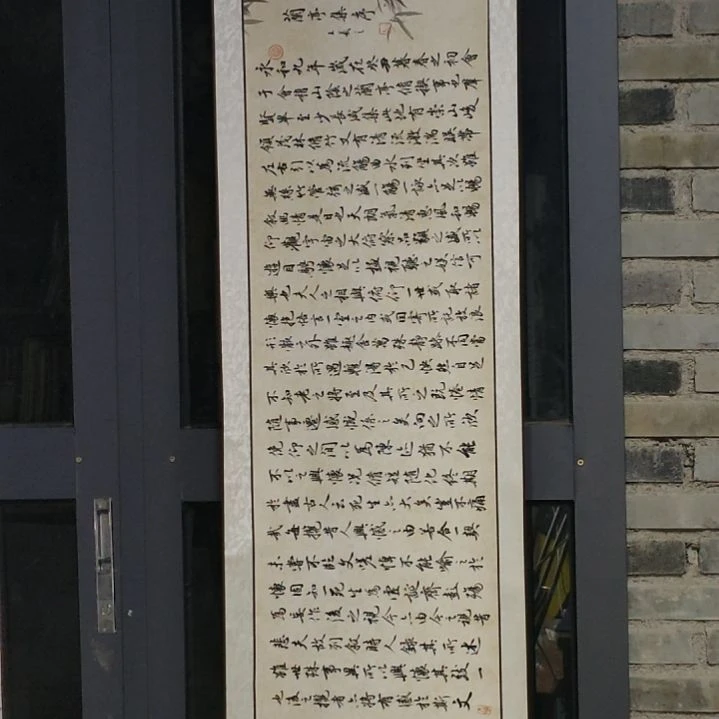 蘭亭集序
王羲之
永和九年歲在癸丑暮春之初會
于會稽山陰之蘭亭脩禊事也羣
賢畢至少長咸集此地有崇山峻
領茂林脩竹又有清流激湍映帶
左右引以為流觴曲水列坐其次雖
無絲竹管絃之盛一觴一詠亦足以暢
敘幽情是日也天朗氣清惠風和暢
仰觀宇宙之大俯察品類之盛所以
遊目騁懷足以極視聽之娛信可
樂也夫人之相與俯仰一世或取諸
懷抱悟言一室之內或因寄所託放浪
形骸之外雖趣舍萬殊靜躁不同當
其欣於所遇暫得於己怏然自足
不知老之將至及其所之既倦情
隨事遷感慨係之矣向之所欣
俛仰之間以為陳迹猶不能
不以之興懷況脩短隨化終期
於盡古人云死生亦大矣豈不痛
哉每攬昔人興感之由若合一契
未嘗不臨文嗟悼不能喻之於
懷固知一死生為虛誕齊彭殤
為妄作後之視今亦由今之視昔
悲夫故列敘時人錄其所述
雖世殊事異所以興懷其致一
也後之攬者亦將有感於斯文